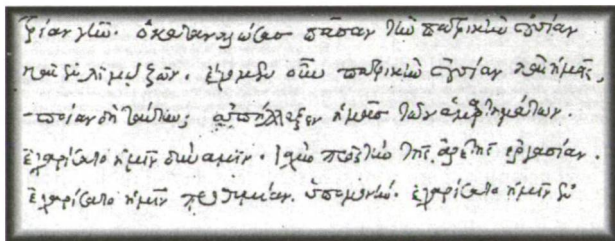 ξίαν γῆν. ὁ καταναλώσας πᾶσαν τὴν πατρικὴν οὐσίαν
καὶ ἐν λιμῷ ζῶν. ἔχομεν οὖν πατρικὴν οὐσίαν καὶ ἡμεῖς,
ποίαν δὴ ταύτην; ἀπήλλαξεν ἡμᾶς τῶν ἁμαρτημάτων.
ἐχαρίσατο ἡμῖν δύναμιν. ἰσχὺν πρὸς τὴν τῆς ἀρετῆς ἐργασίαν.
ἐχαρίσατο ἡμῖν προθυμίαν. ὑπομονήν. ἐχαρίσατο ἡμῖν ἐν